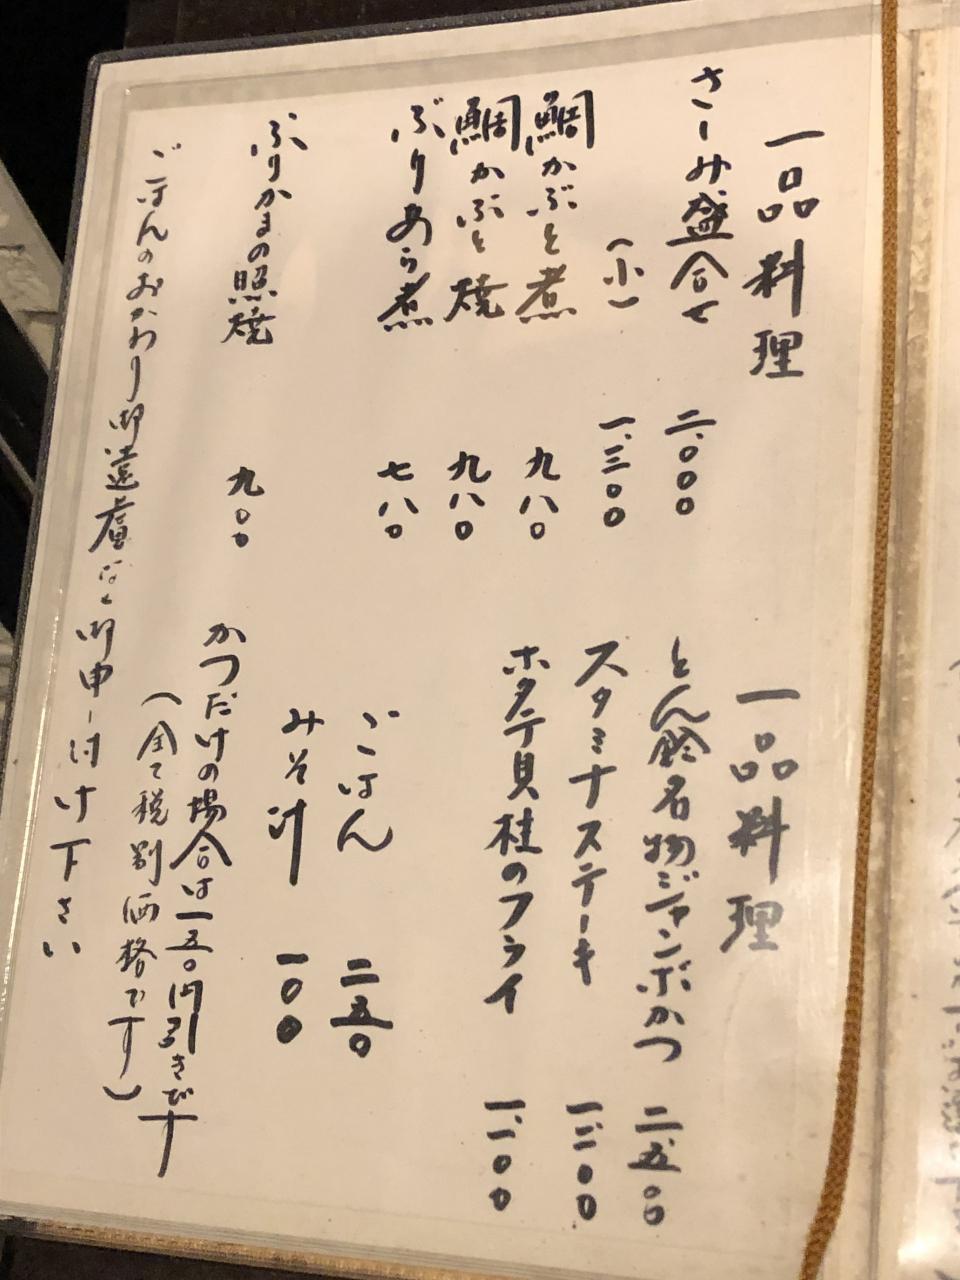 一品料理
さしみ盛合せ 二、〇〇〇
(小) 一、三〇〇
鯛かぶと煮 九八〇
鯛かぶと焼 九八〇
ぶりあら煮 七八〇
ぶりかまの照焼 九〇〇
一品料理
とん鈴名物ジャンボかつ 二、五〇〇
スタミナステーキ 一、二〇〇
ホタテ貝柱のフライ 一、一〇〇
ごはん 二五〇
みそ汁 一〇〇
かつだけの場合は一五〇円引きです
(全て税別価格です)
ごはんのおかわり御遠慮なく御申し付け下さい